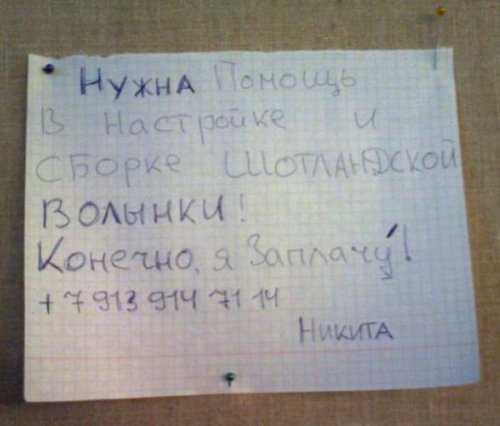 Нужна Помощь
в настройке и
сборке шотландской
волынки!
Конечно, я заплачу́!
+7 913 914 71 14
Никита